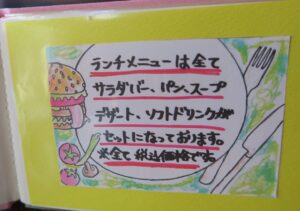 ランチメニューは全て
サラダバー、パン、スープ
デザート、ソフトドリンクが
セットになっております。
※全て税込価格です。